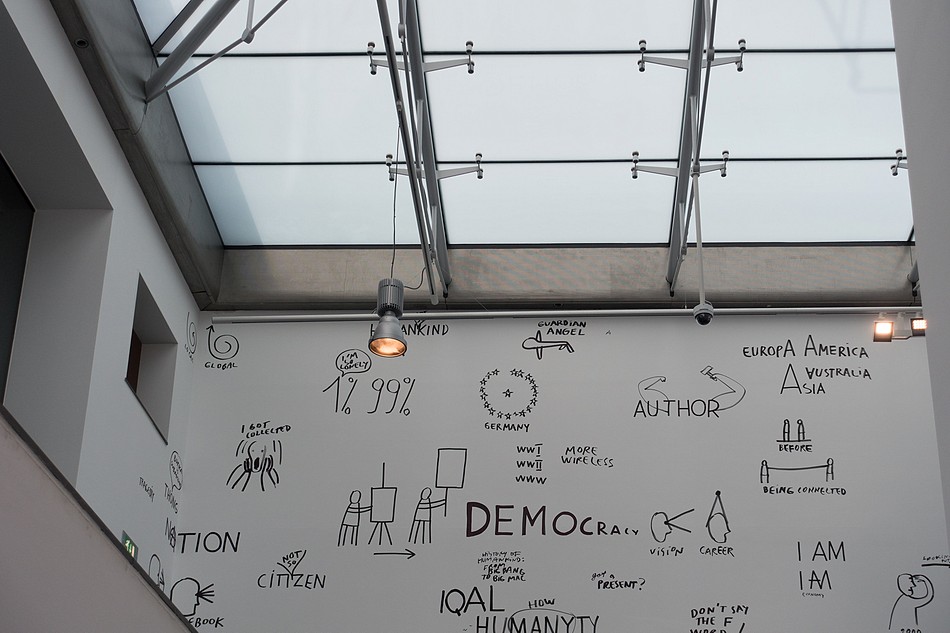 MANKIND
GUARDIAN
ANGEL
GLOBAL
I'M
SO
LONELY
1% 99%
GERMANY
AUTHOR
EUROPA AMERICA
AUSTRALIA
ASIA
I GOT
COLLECTED
WWI
WWII
WWW
MORE
WIRELESS
BEFORE
BEING CONNECTED
DEMOCRACY
VISION
CAREER
TION
NOT
SO
CITIZEN
HISTORY OF
HUMANKIND:
FROM
BIG BANG
TO BIG MAC
GOT A
PRESENT?
I AM
I AM
EBOOK
IQAL
HOW
HUMANYTY
DON'T SAY
THE F
WORD!